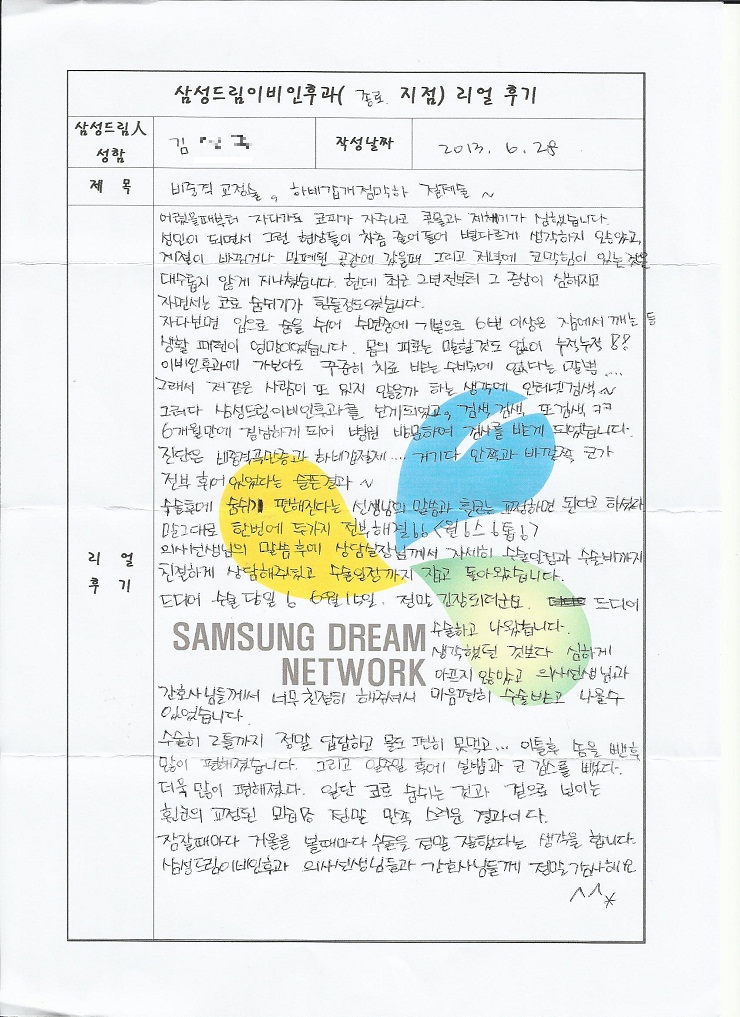 삼성드림이비인후과( 종로 지점) 리얼 후기
삼성드림人
성함
김
작성날짜
2013. 6. 28
제 목
비중격 교정술, 하비갑개점막하 절제술 ~
리 얼
후 기
어렸을때부터 자다가도 코피가 자주나고 콧물과 재채기가 심했습니다.
성인이 되면서 그런 현상들이 차츰 줄어들어 별다르게 생각하지 않았고,
계절이 바뀌거나 밀폐된 공간에 갔을때 그리고 저녁에 코막힘이 있는것을
대수롭지 않게 지나쳤습니다. 헌데 최근 2년전부터 그 증상이 심해지고
자면서는 코로 숨쉬기가 힘들정도였습니다.
자다보면 입으로 숨을 쉬어 수면중에 기본으로 6번 이상은 잠에서 깨는 등
생활 패턴이 엉망이었습니다. 몸의 피로는 말할것도 없이 누적누적 !!
이비인후과에 가보아도 꾸준히 치료 받는 수밖에 없다는 말뿐 ...
그래서 저같은 사람이 또 있지 않을까 하는 생각에 인터넷검색 ~
그러다 삼성드림이비인후과를 보게되었고, 검색 검색, 또 검색 ㅋㅋ
6개월만에 결심하게 되어 병원 방문하여 검사를 받게 되었습니다.
진단은 비중격곡만증과 하비갑절제 ... 거기다 안쪽과 바깥쪽 코가
전부 휘어 있었다는 슬픈결과 ~
수술후에 숨쉬기 편해진다는 선생님의 말씀과 휜코는 교정하면 된다고 하셨다
말그대로 한번에 두가지 전부해결!! <원!스!톱!>
의사선생님의 말씀후에 상담실장님께서 자세히 수술일정과 수술방법까지
친절하게 상담해주셨고 수술일정까지 잡고 돌아왔습니다.
드디어 수술 당일 ! 6월 15일. 정말 긴장되더군요. 드디어
수술하고 나왔습니다.
SAMSUNG DREAM
NETWORK
생각했던 것보다 심하게
아프지 않았고 의사선생님과
간호사님들께서 너무 친절히 해주셔서 마음편히 수술받고 나올수
있었습니다.
수술히 2틀까지 정말 답답하고 물도 편히 못먹고... 이틀후 솜을 뺀후
많이 편해졌습니다. 그리고 일주일 후에 실밥과 코 깁스를 뺐다.
더욱 많이 편해졌다. 일단 코로 숨쉬는 것과 겉으로 보이는
휜코의 교정된 모습등 정말 만족 스러운 결과이다.
잠잘때마다 거울을 볼때마다 수술을 정말 잘했다는 생각을 합니다.
삼성드림이비인후과 의사선생님들과 간호사님들께 정말 감사해요
^^*